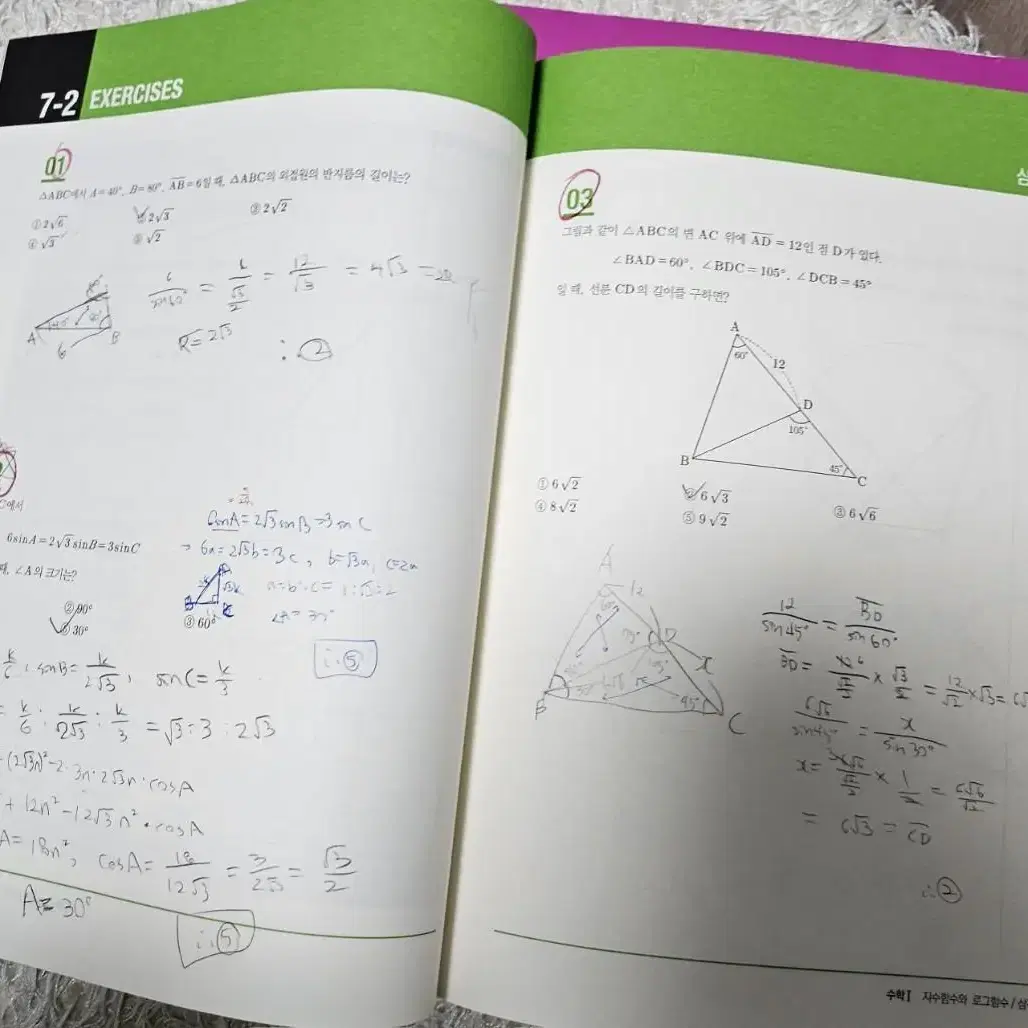 7-2 EXERCISES
01
△ABC에서 A=40°, B=80°, AB=6일 때, △ABC의 외접원의 반지름의 길이는?
① 2√6 ② 2√3 ③ 2√2
④ √3 ⑤ √2
6/sin60° = 6/(√3/2) = 12/√3 = 4√3 = 2R
R=2√3
∴ ②
A 6 B
에서
6sinA=2√3 sinB=3sinC
때, ∠A의 크기는?
② 90° ③ 60°
⑤ 30°
=2√3 sinB=3sinC
→ 6a=2√3b=3c, b=√3a, c=2a
a:b:c=1:√3:2
∠A=30°
∴ ⑤
k/6, sinB=k/2√3, sinC=k/3
= k/6 : k/2√3 : k/3 = √3:3:2√3
(2√3n)²-2·3n·2√3n·cosA
+12n²-12√3n²·cosA
A=18n², cosA=18/12√3=3/2√3=√3/2
A=30°
∴ ⑤
03
그림과 같이 △ABC의 변 AC 위에 AD=12인 점 D가 있다.
∠BAD=60°, ∠BDC=105°, ∠DCB=45°
일 때, 선분 CD의 길이를 구하면?
A
60°
12
D
105°
B
45°
C
① 6√2 ② 6√3 ③ 6√6
④ 8√2 ⑤ 9√2
A
60°
12
D
x
45°
B
C
12/sin45° = BD/sin60°
BD= × √3/2 = 12/√2 ×√3=6√
6√6/sin45° = x/sin30°
x= × 1/2 = 6√6/√2
= 6√3 = CD
∴ ②
수학Ⅰ 지수함수와 로그함수 / 삼